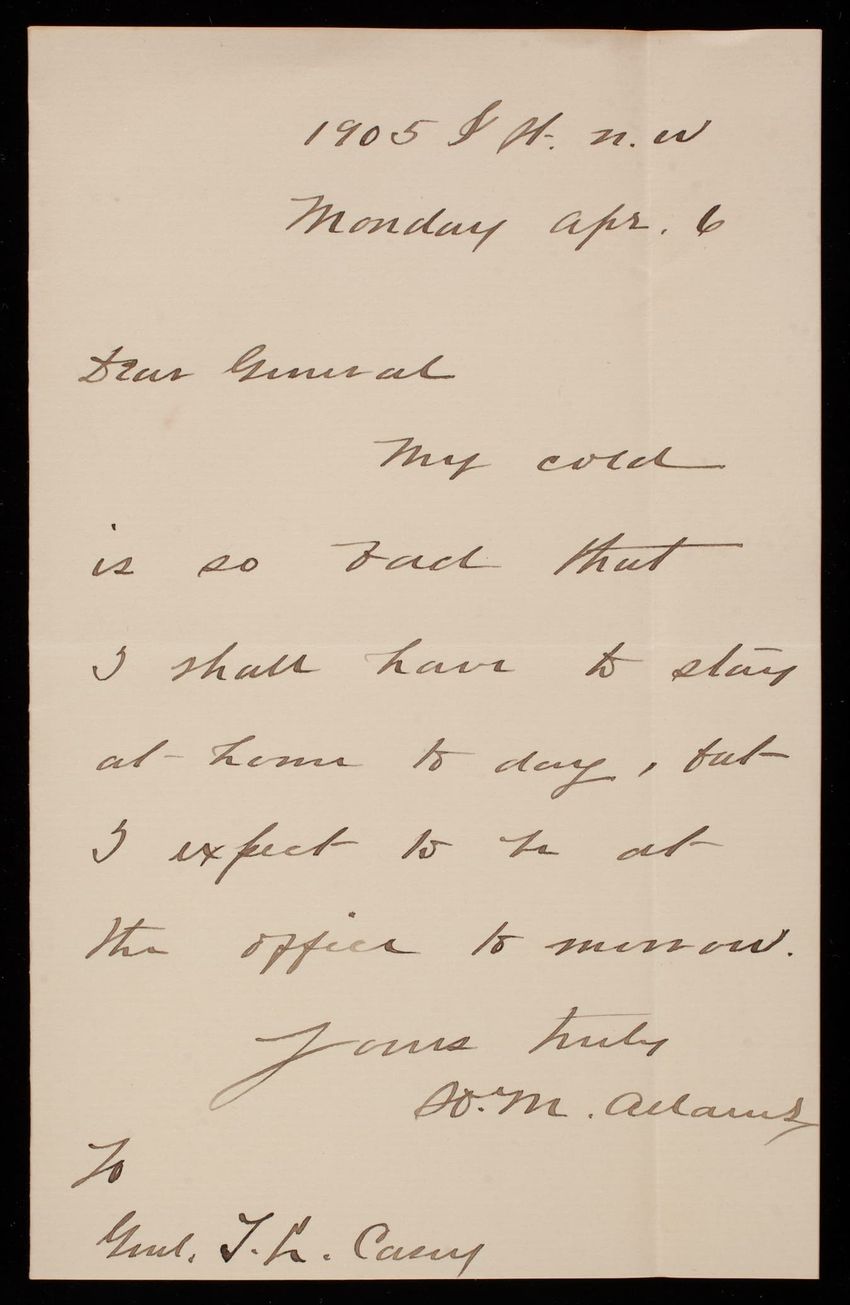 1905 I St. N. W
Monday Apr. 6
Dear General
My cold
is so bad that
I shall have to stay
at home to day, but
I expect to be at
the office to morrow.
Yours truly
H. M. Adams
To
Genl. T. L. Casey